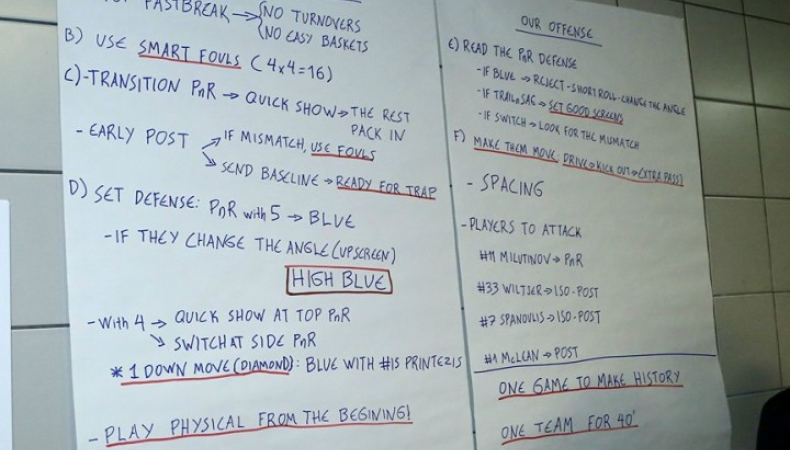 FASTBREAK → NO TURNOVERS
NO EASY BASKETS
B) USE SMART FOULS (4x4=16)
C)-TRANSITION PnR → QUICK SHOW → THE REST
PACK IN
- EARLY POST → IF MISMATCH, USE FOULS
→ SEND BASELINE → READY FOR TRAP
D) SET DEFENSE: PnR with 5 → BLUE
- IF THEY CHANGE THE ANGLE (UPSCREEN)
HIGH BLUE
- With 4 → QUICK SHOW AT TOP PnR
→ SWITCH AT SIDE PnR
* 1 DOWN MOVE (DIAMOND): BLUE WITH #15 PRINTEZIS
- PLAY PHYSICAL FROM THE BEGINING!
OUR OFFENSE
E) READ THE PnR DEFENSE
- IF BLUE → REJECT - SHORT ROLL - CHANGE THE ANGLE
- IF TRAILnSAG → SET GOOD SCREENS
- IF SWITCH → LOOK FOR THE MISMATCH
F) MAKE THEM MOVE, DRIVE → KICK OUT → EXTRA PASS)
- SPACING
- PLAYERS TO ATTACK
#11 MILUTINOV → PnR
#33 WILTJER → ISO - POST
#7 SPANOULIS → ISO - POST
#1 McLEAN → POST
ONE GAME TO MAKE HISTORY
ONE TEAM FOR 40'